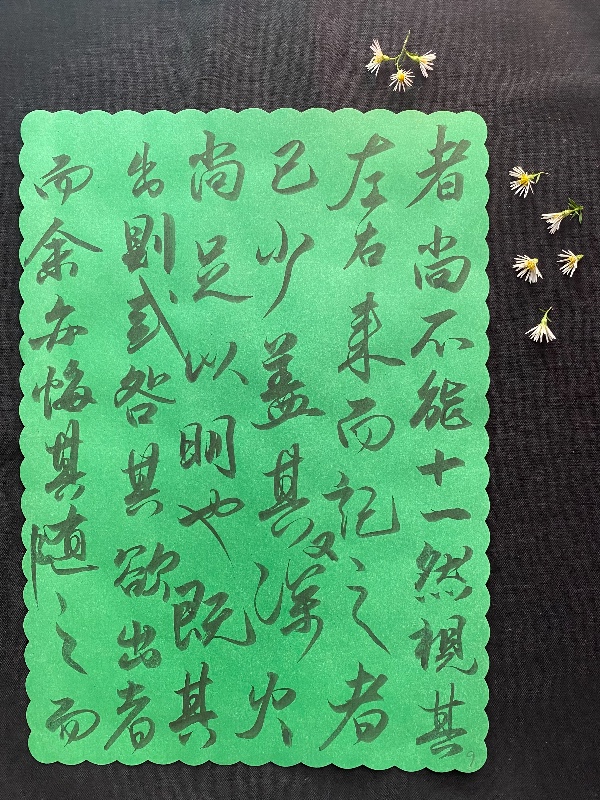 者尚不能十一然視其
左右来而記之者
已少盖其又深火
尚足以明也既其
出則或咎其欲出者
而余亦悔其随之而
9